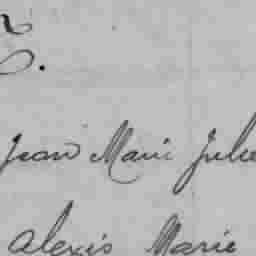 Jean Marie Julie
Alexis Marie